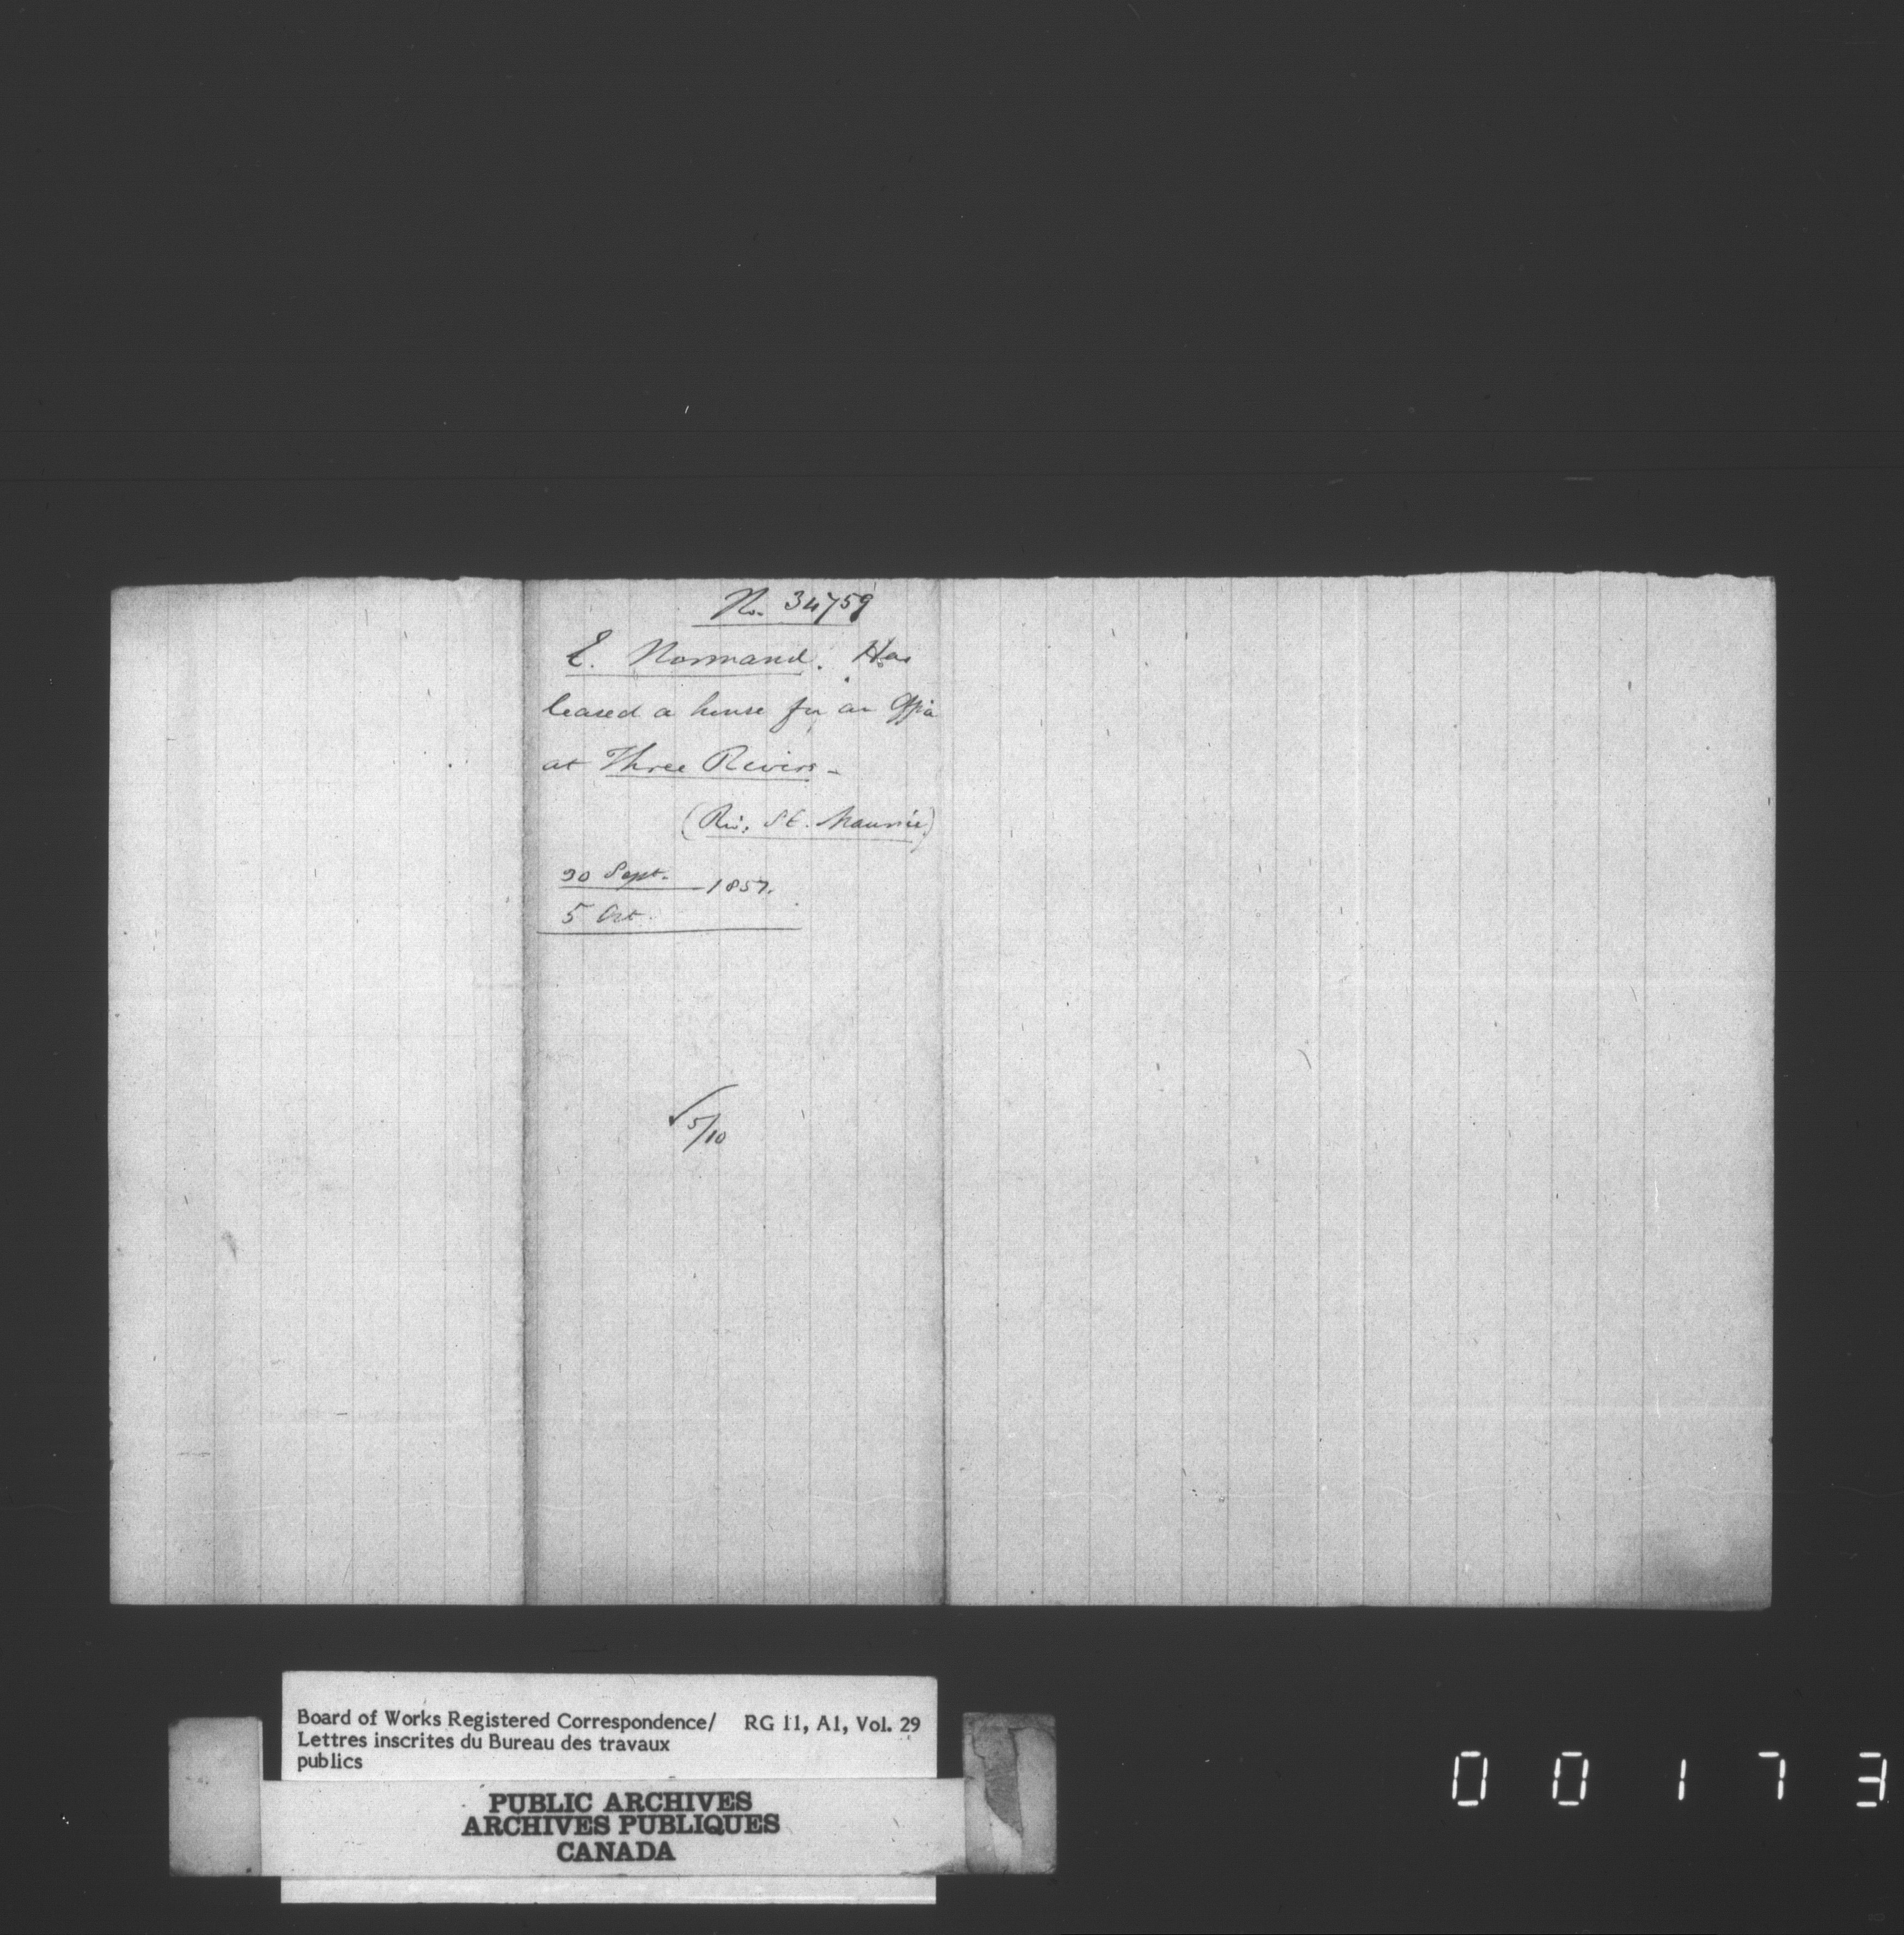 No. 34759
E. Normand. Has
leased a house for an Office
at Three Rivers -
(Riv. St. Maurice)
30 Sept.
1857.
5 Oct.
✓ 5/10
Board of Works Registered Correspondence/ RG 11, A1, Vol. 29
Lettres inscrites du Bureau des travaux
publics
PUBLIC ARCHIVES
ARCHIVES PUBLIQUES
CANADA
00173